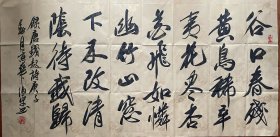 谷口春殘
黄鳥稀辛
夷花尽杏
花飛始憐
幽竹山窓
下不改清
陰待我歸
録唐錢起詩庚子